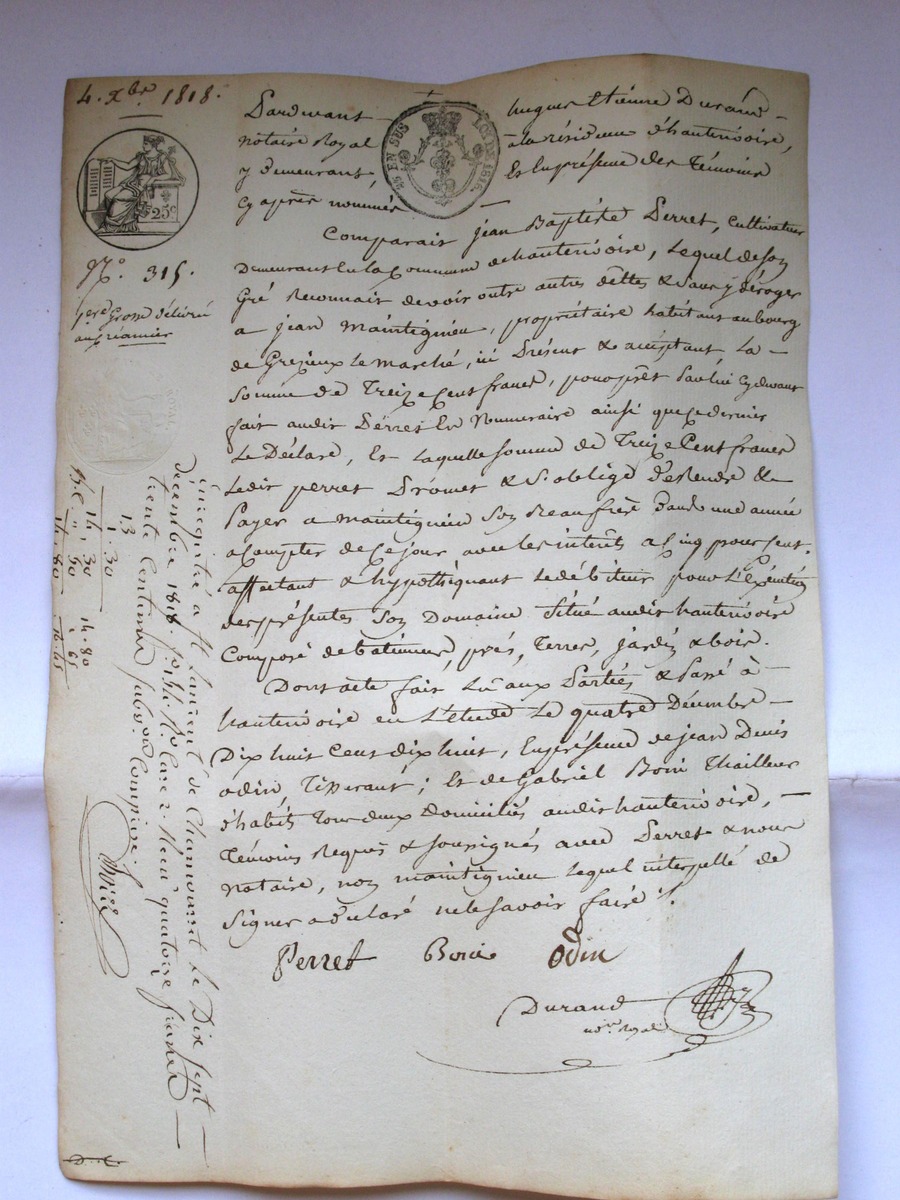 4. Xbre 1818.
25c
No. 315.
1ere Grosse délivré
au créancier
EN SUS LOI DE 1816.
Pardevant hugues Etienne Durand
notaire Royal à la résidence d'hauterivoire,
y demeurant, Et En présence des Témoins
Cy après nommés
Comparait jean Baptiste Perret, Cultivateur
Demeurant En la Commune de hauterivoire, Lequel de son
Gré Reconnait devoir outre autres dettes & sans y déroger
a jean maintignieu, propriétaire habitant au bourg
de Grezieux Le marché, ici Présent & acceptant, La
Somme de Treize Cent francs, pour prêt par lui cy devant
fait audit Perret En Numeraire ainsi que ce dernier
Le Déclare, Et Laquelle somme de Treize Cent francs
Ledit perret Promet & S'oblige d'Erendre &
Payer a maintignieu Son Beaufrère dans une année
a Compter de Ce jour avec les intérêts a Cinq pour Cent.
affectant & hypothéquant Le débiteur pour L'Exécution
des présentes Son Domaine Situé audit hauterivoire
Composé de batimens, prés, Terres, jardin & bois.
Dont acte fait Lu aux Parties & Passé à
hauterivoire en L'étude Le quatre Décembre
Dix huit Cent dix huit, En présence de jean Denis
odin Tisserant; Et de Gabriel Boni Thailleur
d'habits Tous deux Domiciliés audit hauterivoire,
Témoins Requis & soussignés avec Perret & nous
notaire, non maintignieu Lequel interpellé de
Signer a déclaré ne le savoir faire.
Perret Boni Odin
Durand
nore Royal
Enregistré a St Laurent de Chamousset Le Dix Sept
decembre 1818. Reçu quatorze francs
trente Centimes Subvon Comprise.
13
1. 30
14. 30
14. 80
14. 80
D. C.